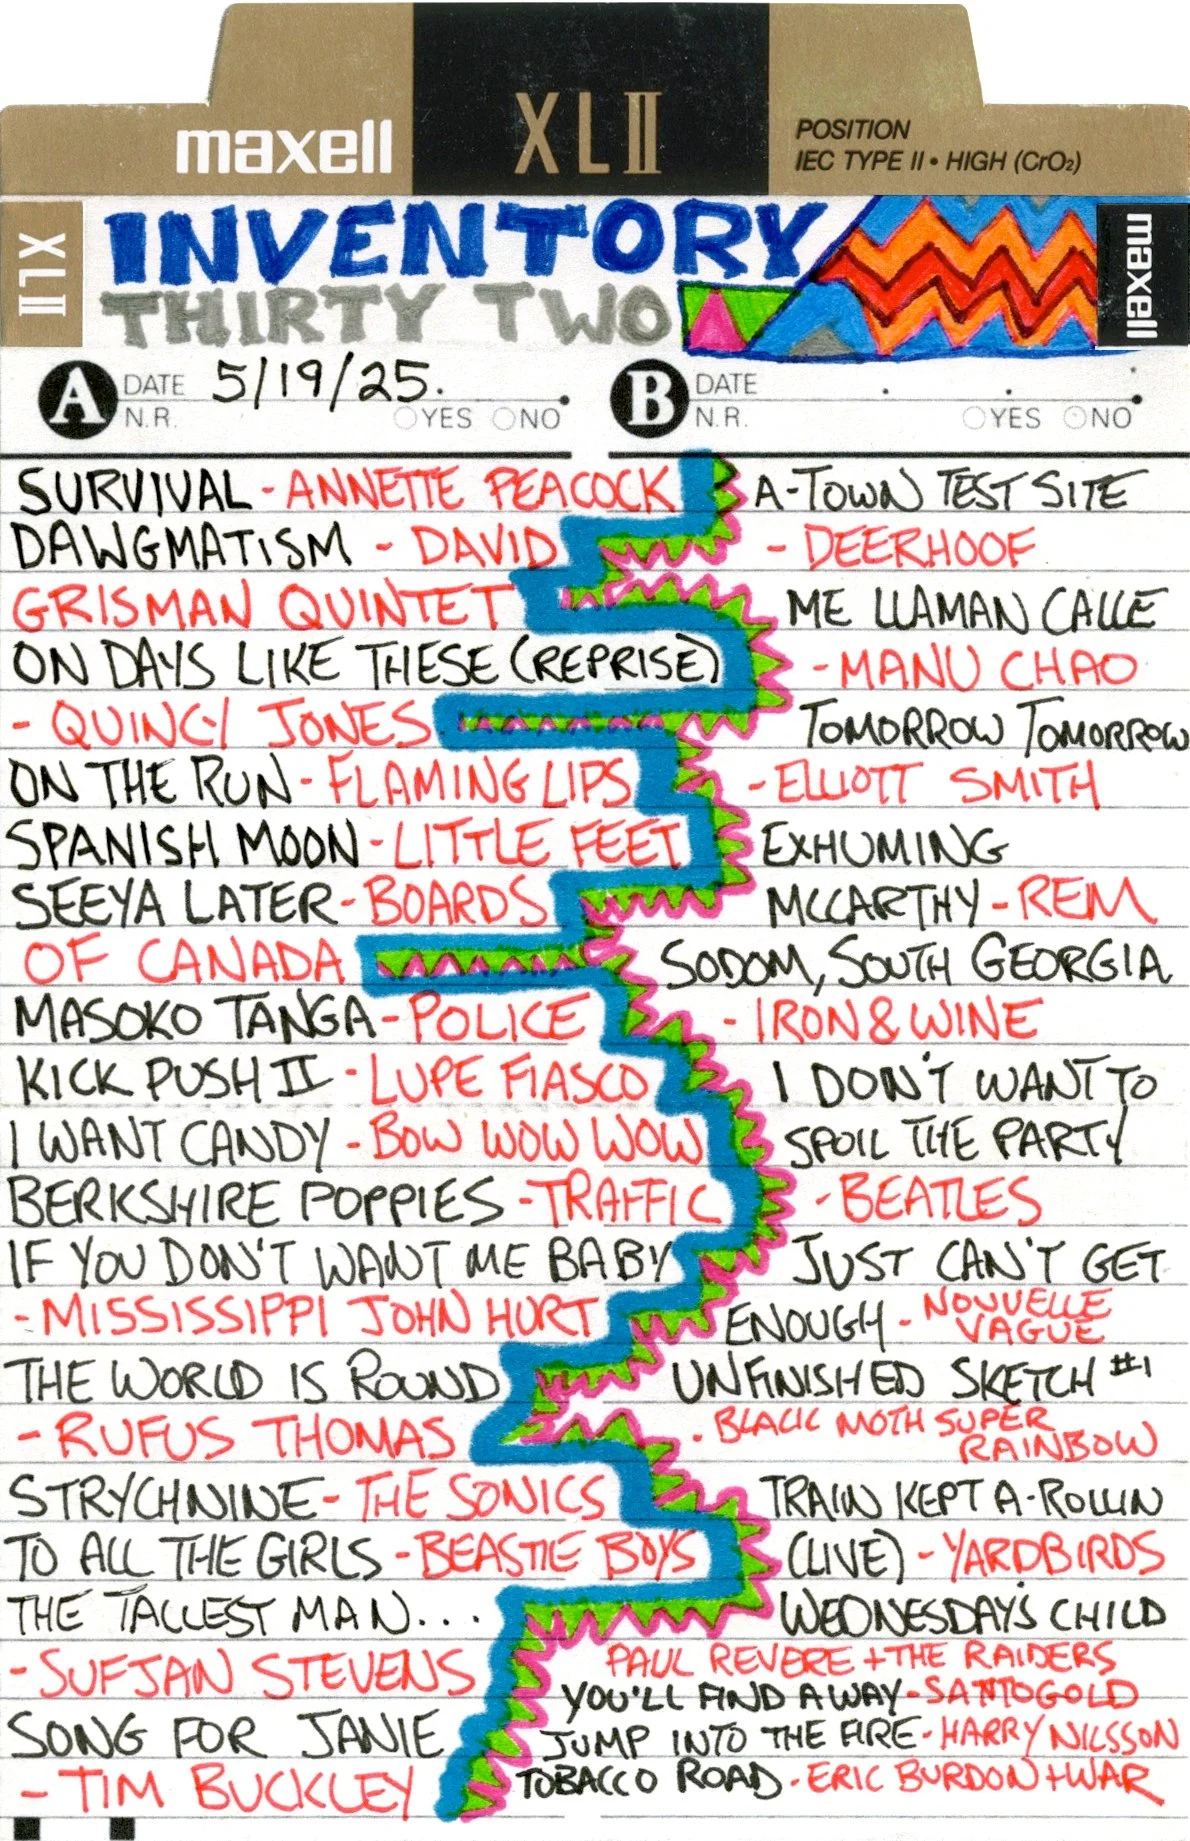 maxell
XLII
POSITION
IEC TYPE II • HIGH (CrO2)
XLII
INVENTORY
THIRTY TWO
maxell
A DATE 5/19/25.
N.R. YES NO
B DATE
N.R. YES NO
SURVIVAL - ANNETTE PEACOCK
DAWGMATISM - DAVID
GRISMAN QUINTET
ON DAYS LIKE THESE (REPRISE)
- QUINCY JONES
ON THE RUN - FLAMING LIPS
SPANISH MOON - LITTLE FEET
SEEYA LATER - BOARDS
OF CANADA
MASOKO TANGA - POLICE
KICK PUSH II - LUPE FIASCO
I WANT CANDY - BOW WOW WOW
BERKSHIRE POPPIES - TRAFFIC
IF YOU DON'T WANT ME BABY
- MISSISSIPPI JOHN HURT
THE WORLD IS ROUND
- RUFUS THOMAS
STRYCHNINE - THE SONICS
TO ALL THE GIRLS - BEASTIE BOYS
THE TALLEST MAN...
- SUFJAN STEVENS
SONG FOR JANIE
- TIM BUCKLEY
A-TOWN TEST SITE
- DEERHOOF
ME LLAMAN CALLE
- MANU CHAO
TOMORROW TOMORROW
- ELLIOTT SMITH
EXHUMING
MCCARTHY - REM
SODOM, SOUTH GEORGIA
- IRON & WINE
I DON'T WANT TO
SPOIL THE PARTY
- BEATLES
JUST CAN'T GET
ENOUGH - NOUVELLE
VAGUE
UNFINISHED SKETCH #1
- BLACK MOTH SUPER
RAINBOW
TRAIN KEPT A-ROLLIN
(LIVE) - YARDBIRDS
WEDNESDAY'S CHILD
PAUL REVERE + THE RAIDERS
YOU'LL FIND A WAY - SANTOGOLD
JUMP INTO THE FIRE - HARRY NILSSON
TOBACCO ROAD - ERIC BURDON + WAR